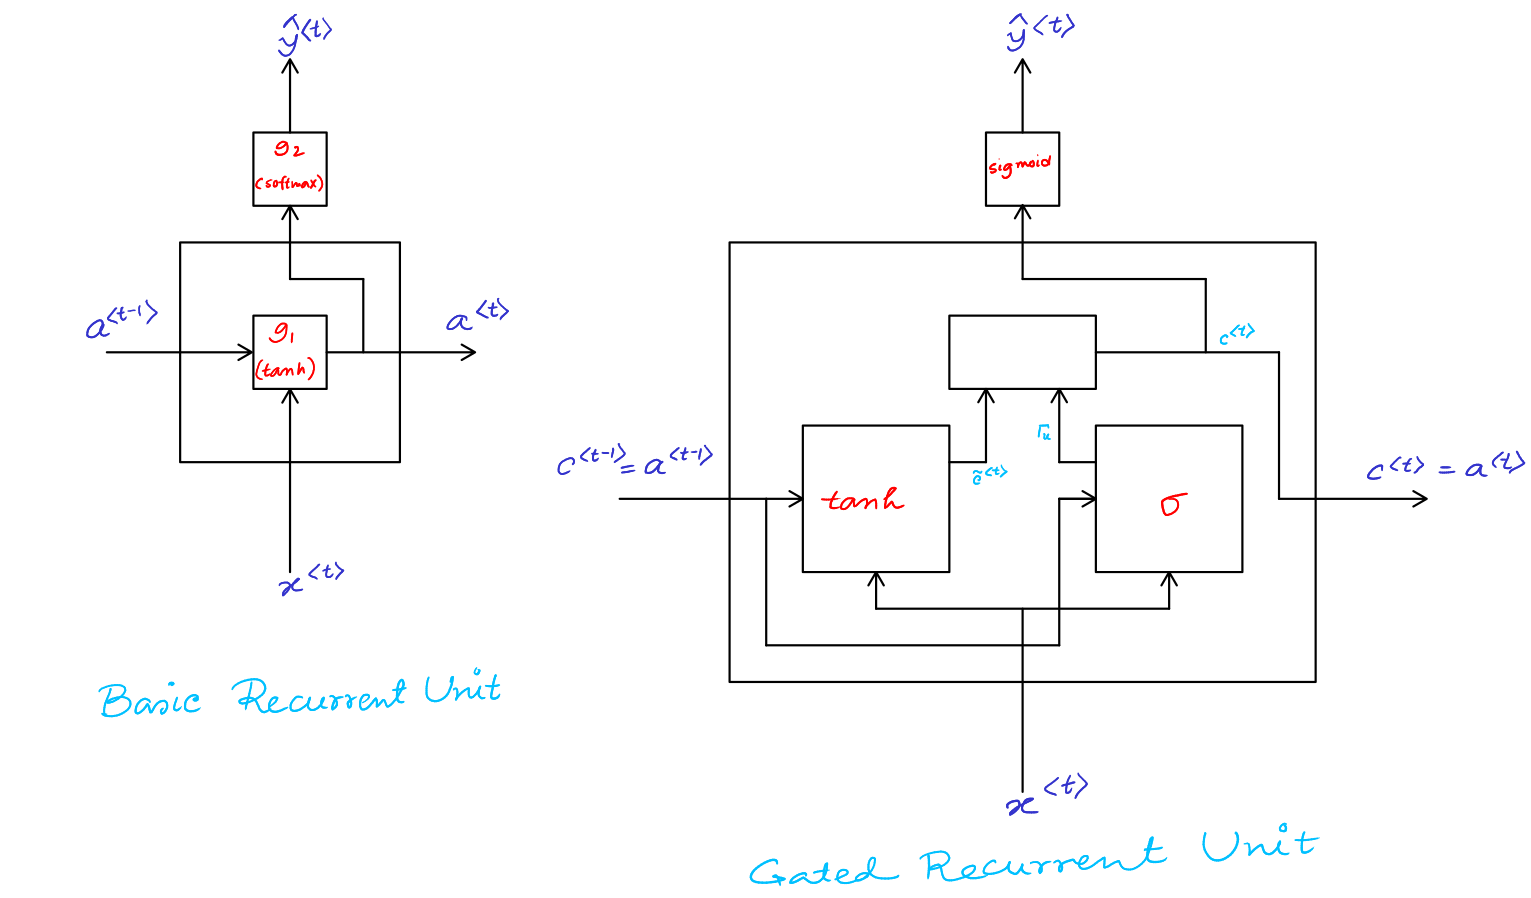 ŷ<t>
g₂
(softmax)
a<t-1>
g₁
(tanh)
a<t>
x<t>
Basic Recurrent Unit
ŷ<t>
sigmoid
c<t>
c<t-1> = a<t-1>
c̃<t>
Γᵤ
tanh
σ
c<t> = a<t>
x<t>
Gated Recurrent Unit